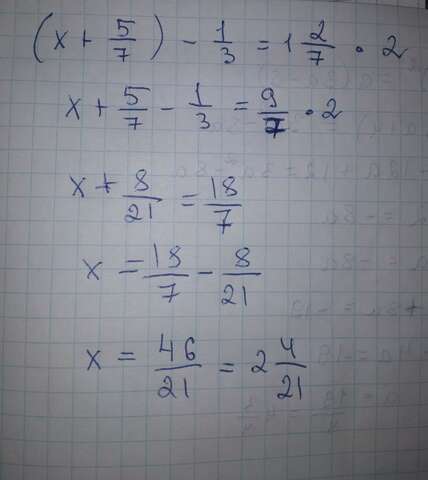 (x + 5/7) - 1/3 = 1 2/7 · 2
x + 5/7 - 1/3 = 9/7 · 2
x + 8/21 = 18/7
x = 18/7 - 8/21
x = 46/21 = 2 4/21